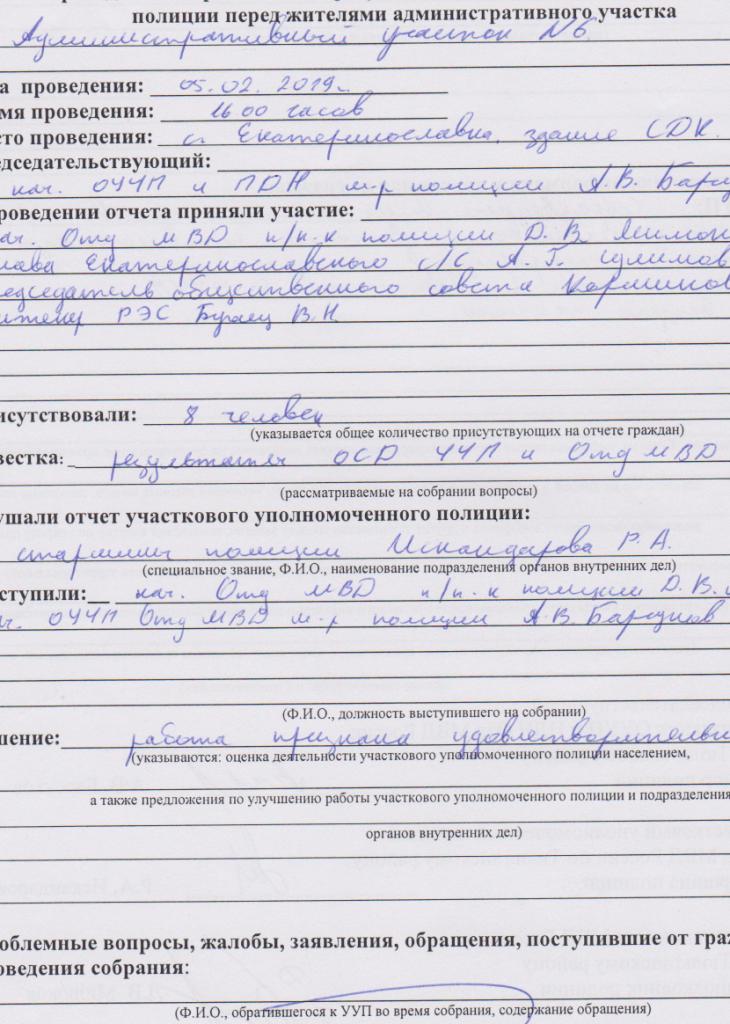 полиции перед жителями административного участка
Административный участок №6
а проведения: 05.02.2019г.
мя проведения: 16 00 часов
сто проведения: с. Екатеринославка, здание СДК.
едседательствующий:
нач. ОУУП и ПДН м-р полиции А.В.
роведении отчета приняли участие:
нач. Отд МВД п/п-к полиции Д.В.
лава Екатеринославского с/с А.Г.
редседатель общественного совета
инженер РЭС В.Н.
исутствовали: 8 человек
(указывается общее количество присутствующих на отчете граждан)
вестка: результаты ОСД УУП и Отд МВД
(рассматриваемые на собрании вопросы)
ушали отчет участкового уполномоченного полиции:
старшины полиции Искандарова Р.А.
(специальное звание, Ф.И.О., наименование подразделения органов внутренних дел)
ступили: нач. Отд МВД п/п-к полиции Д.В.
нач. ОУУП Отд МВД м-р полиции А.В.
(Ф.И.О., должность выступившего на собрании)
шение: работа признана удовлетворительн
(указываются: оценка деятельности участкового уполномоченного полиции населением,
а также предложения по улучшению работы участкового уполномоченного полиции и подразделения
органов внутренних дел)
облемные вопросы, жалобы, заявления, обращения, поступившие от гра
оведения собрания:
(Ф.И.О., обратившегося к УУП во время собрания, содержание обращения)